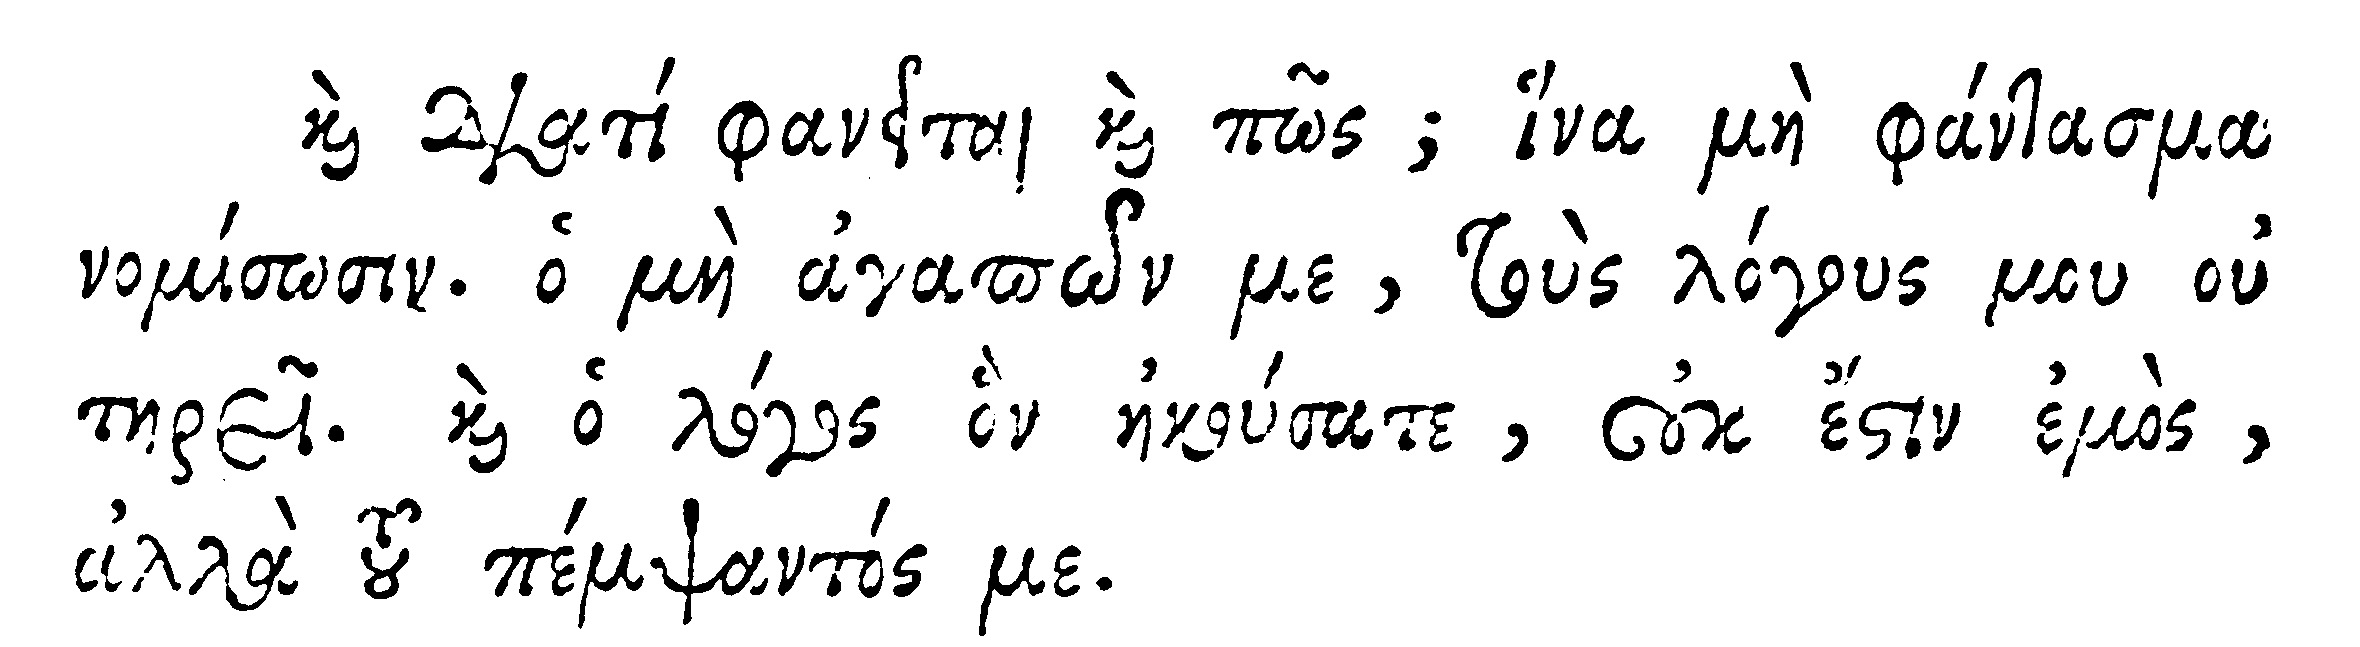 καὶ διατί φανεῖται καὶ πῶς; ἵνα μὴ φάντασμα
νομίσωσιν. ὁ μὴ ἀγαπῶν με, τοὺς λόγους μου οὐ
τηρεῖ. καὶ ὁ λόγος ὃν ἠκούσατε, οὐκ ἔστιν ἐμὸς,
ἀλλὰ τοῦ πέμψαντός με.